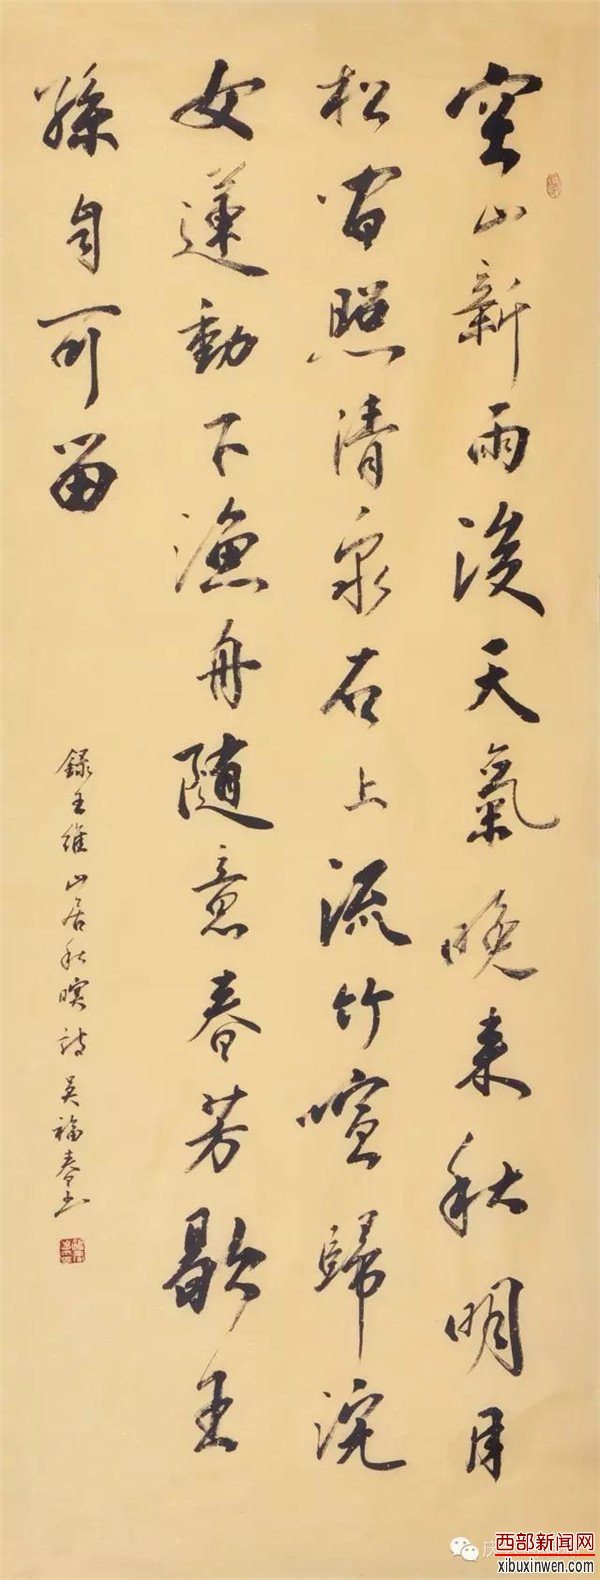 空山新雨後天氣晚来秋明月
松间照清泉石上流竹喧歸浣
女蓮動下漁舟随意春芳歇王
孫自可留
録王維山居秋暝詩 吴福春书
西部新闻网
xibuxinwen.com